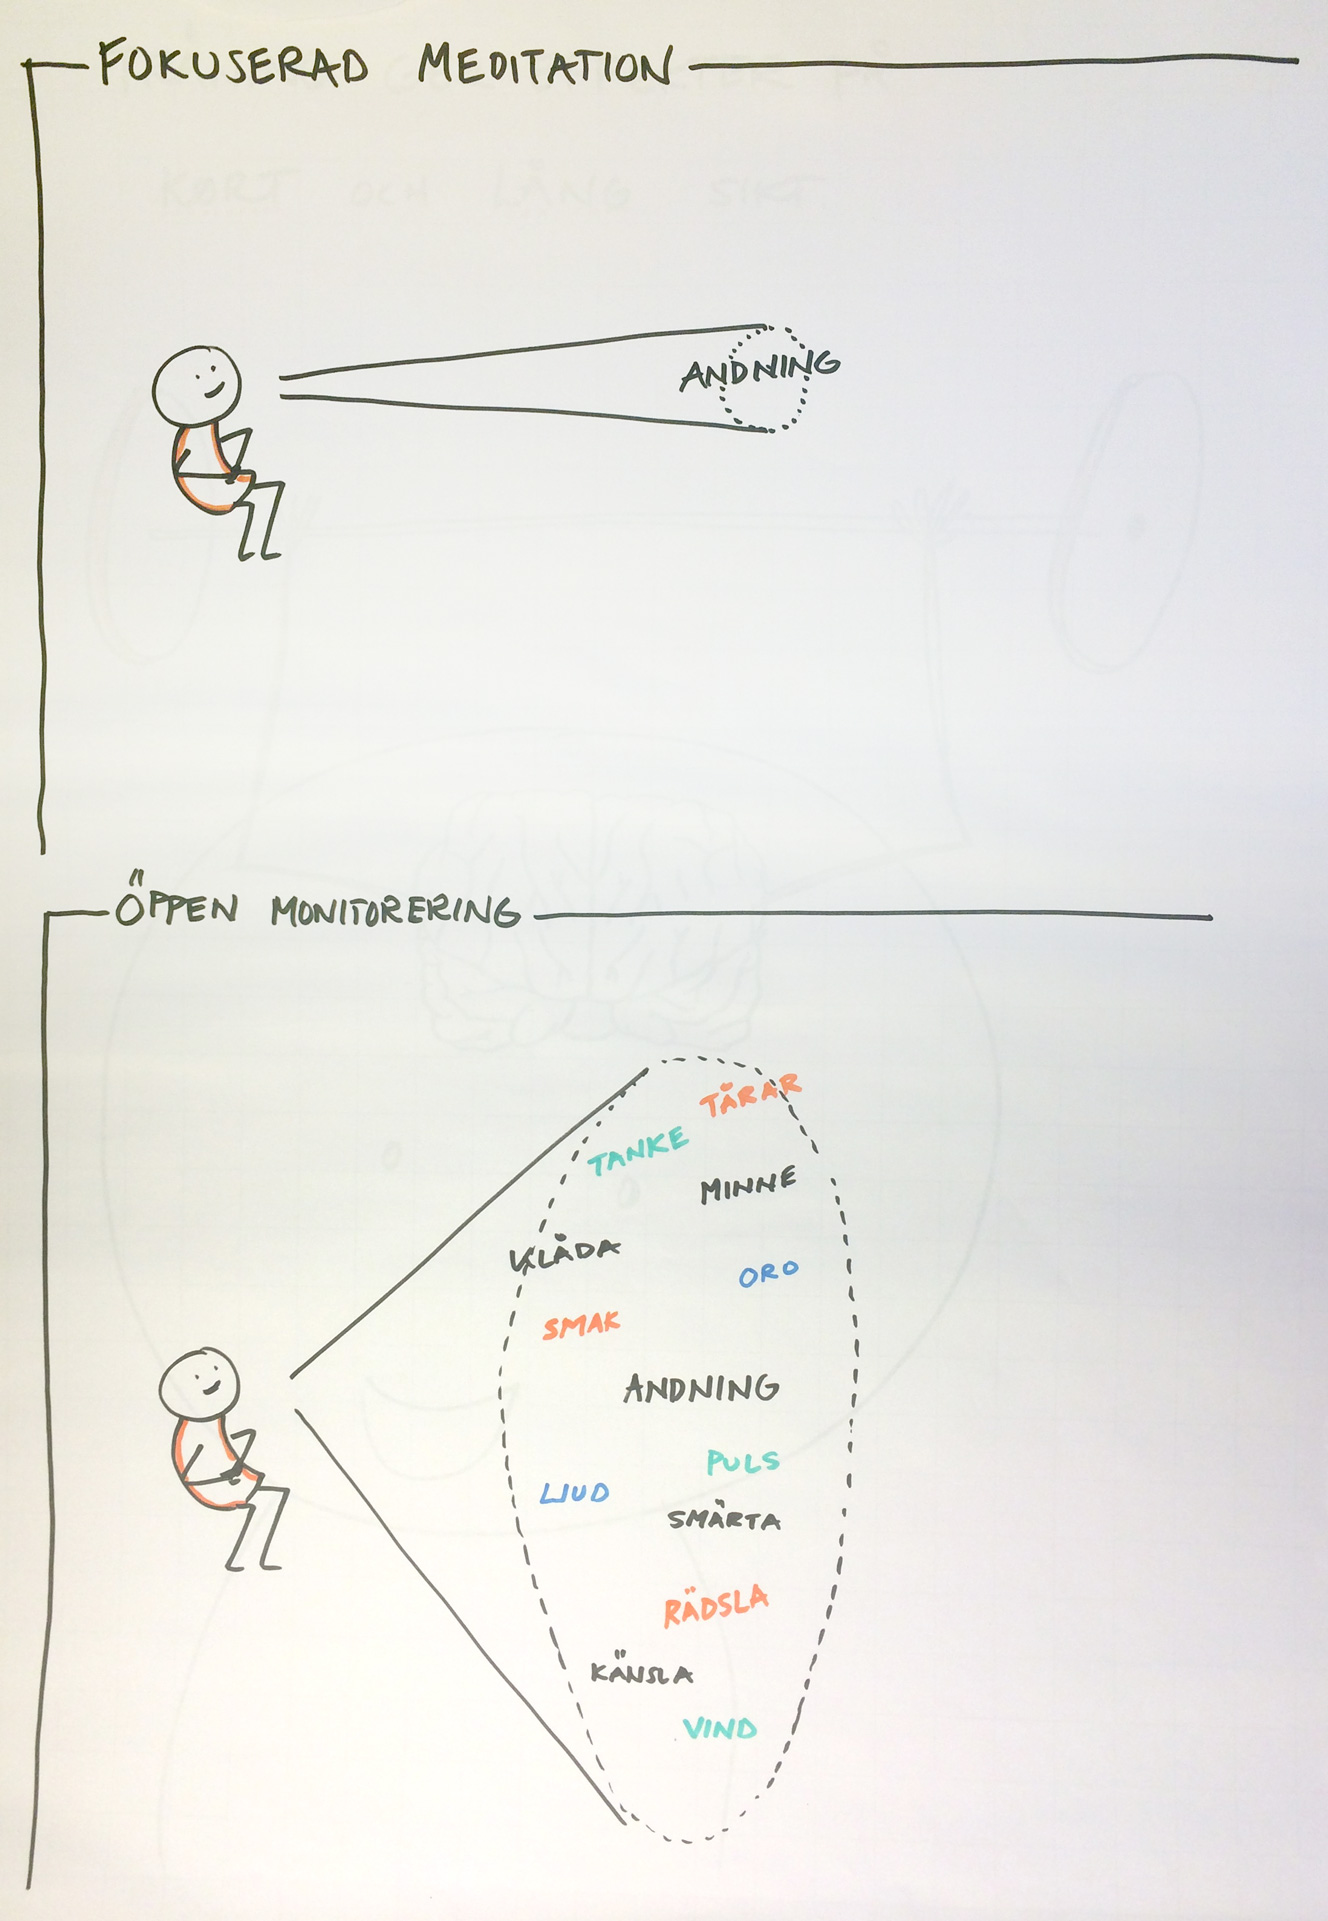 FOKUSERAD MEDITATION
KORT OCH LÅNG SIKT
ANDNING
ÖPPEN MONITORERING
TÅRAR
TANKE
MINNE
KLÅDA
ORO
SMAK
ANDNING
PULS
LJUD
SMÄRTA
RÄDSLA
KÄNSLA
VIND